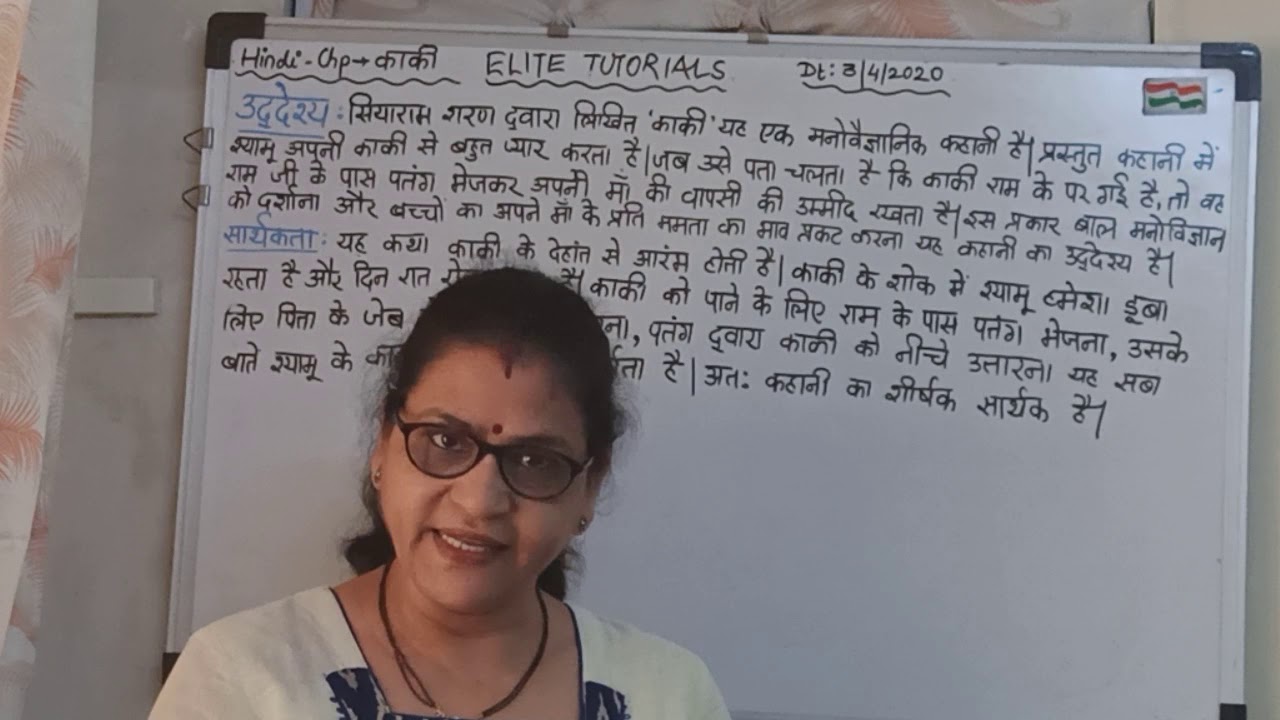 Hindi - Chp → काकी ELITE TUTORIALS Dt: 3/4/2020
उद्देश्य : सियाराम शरण द्वारा लिखित 'काकी' यह एक मनोवैज्ञानिक कहानी है| प्रस्तुत कहानी में
श्यामू अपनी काकी से बहुत प्यार करता है| जब उसे पता चलता है कि काकी राम के घर गई है, तो वह
राम जी के पास पतंग भेजकर अपनी माँ की वापसी की उम्मीद रखता है| इस प्रकार बाल मनोविज्ञान
को दर्शाना और बच्चों का अपने माँ के प्रति ममता का भाव प्रकट करना यह कहानी का उद्देश्य है|
सार्थकता : यह कथा काकी के देहांत से आरंभ होती है| काकी के शोक में श्यामू हमेशा डूबा
रहता है और दिन रात है| काकी को पाने के लिए राम के पास पतंग भेजना, उसके
लिए पिता के जेब ना, पतंग द्वारा काकी को नीचे उतारना यह सब
बाते श्यामू के है| अतः कहानी का शीर्षक सार्थक है|